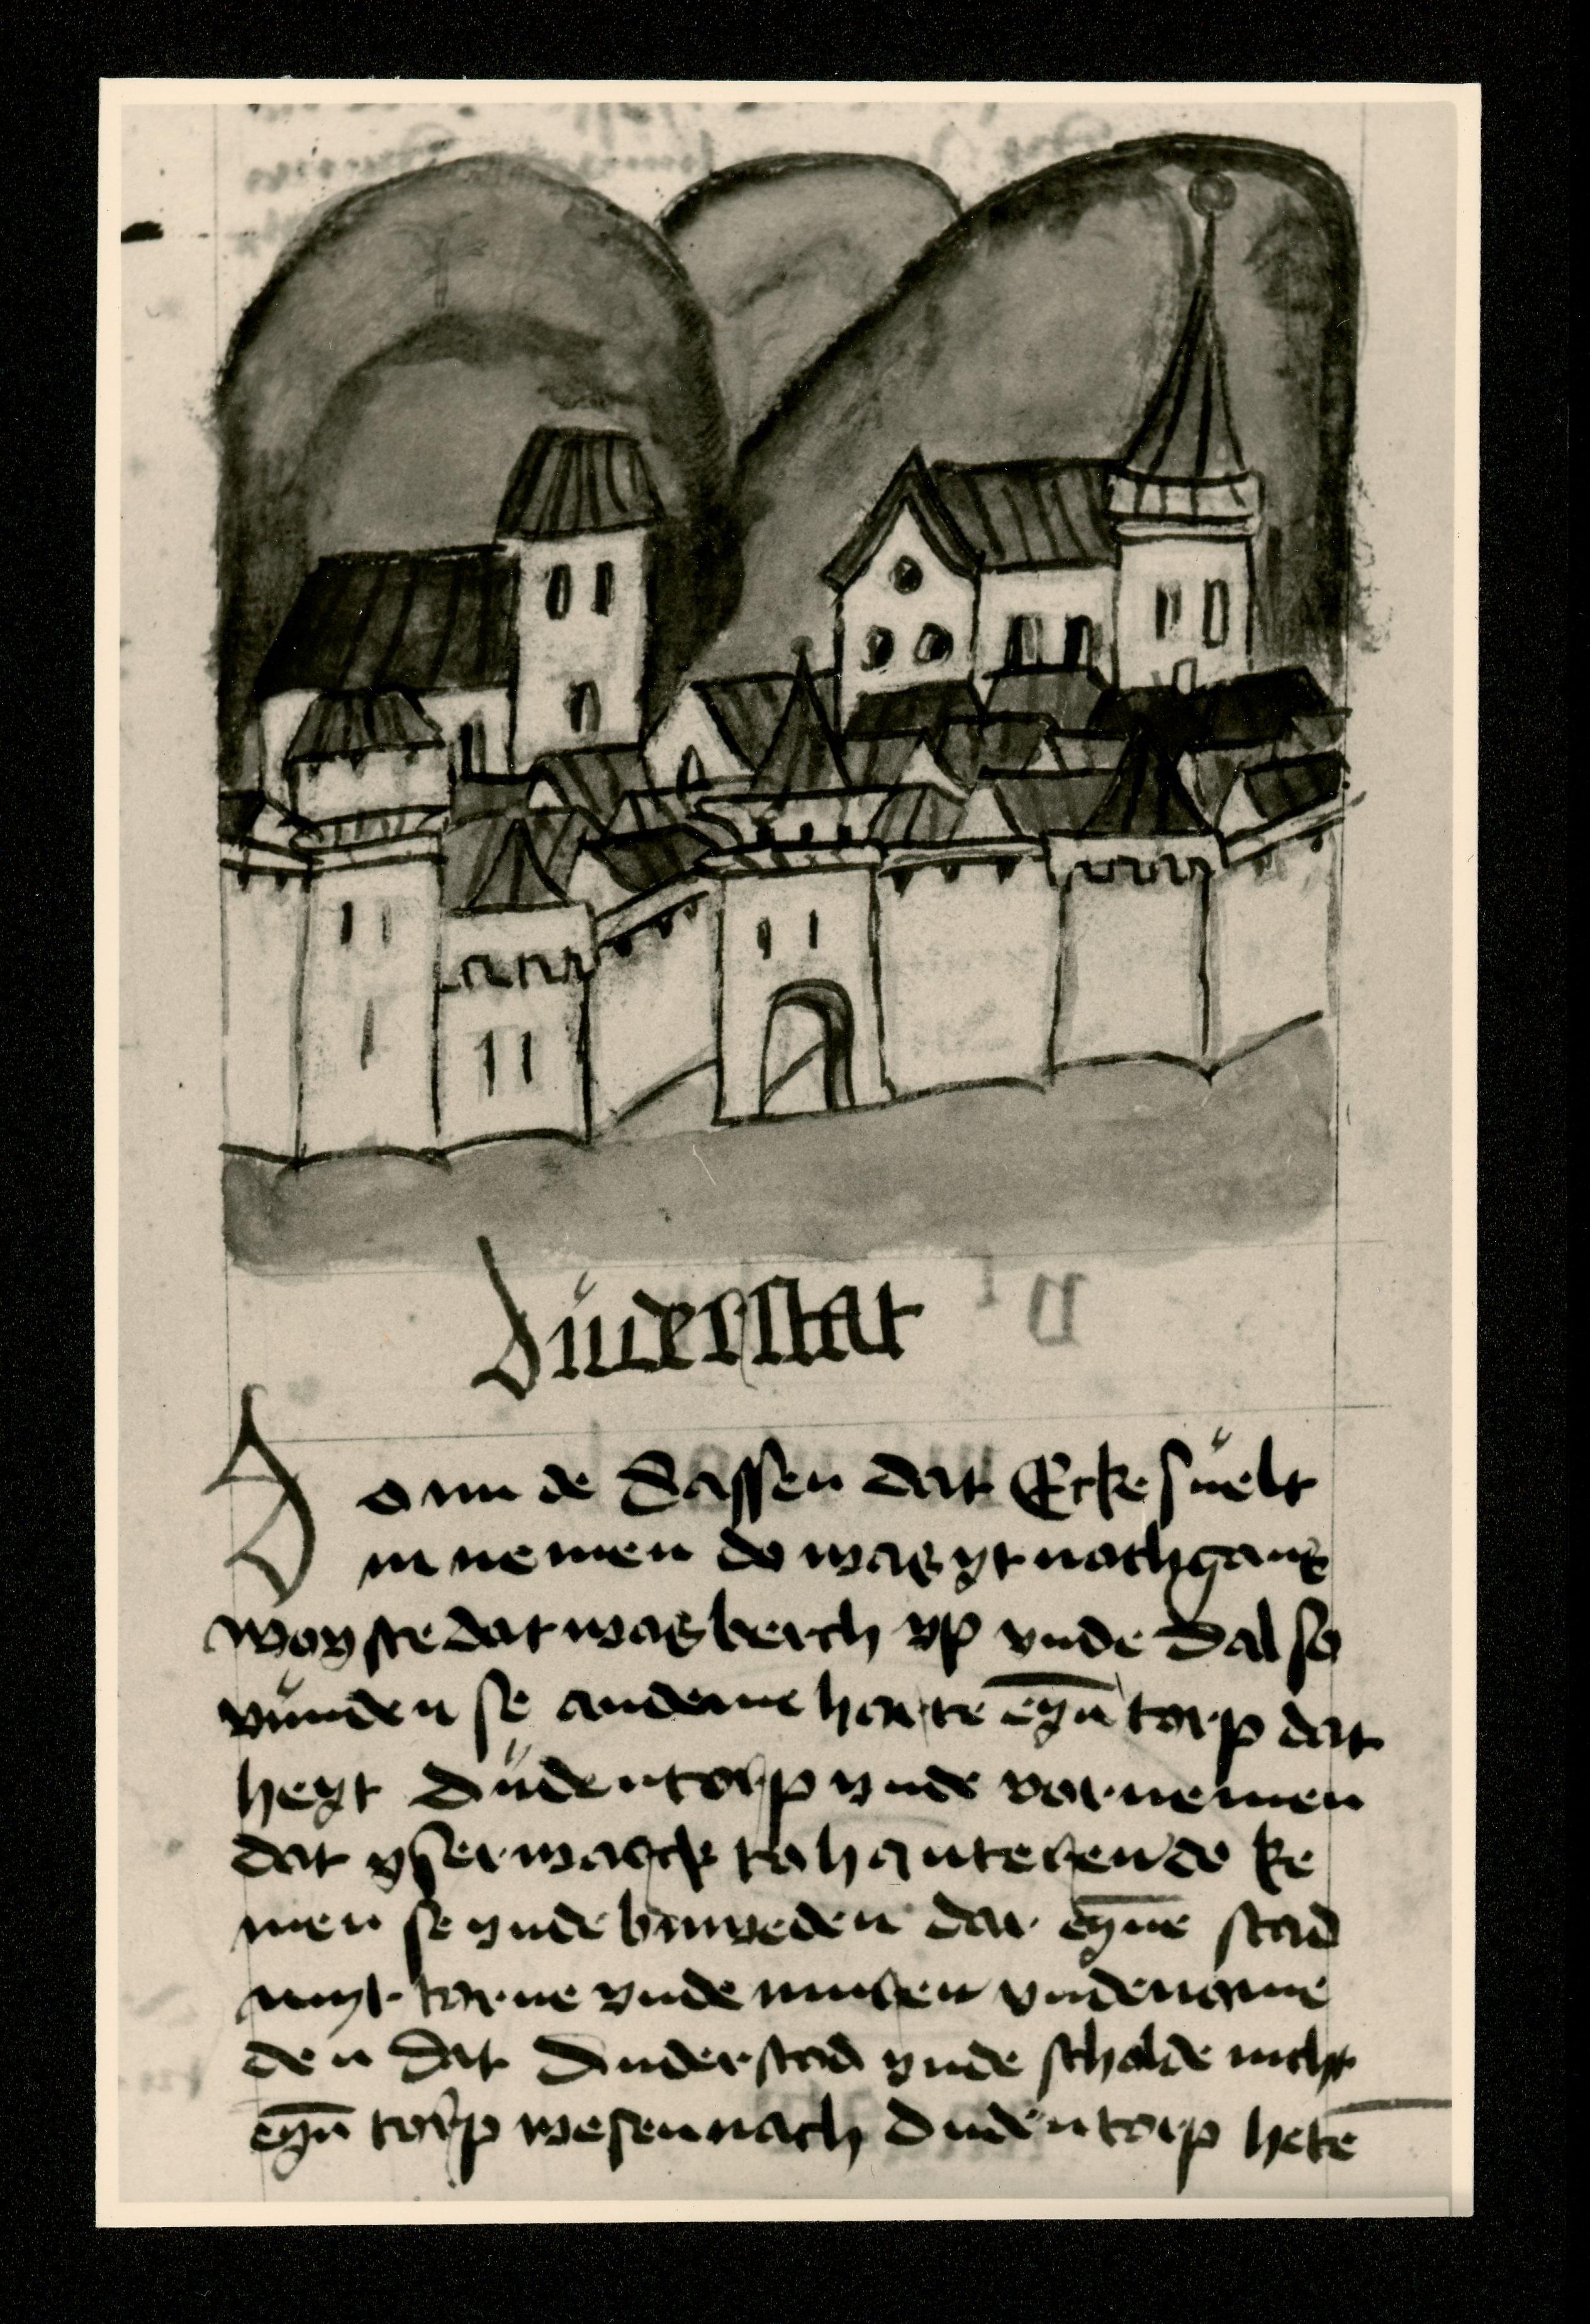 Düderstat
Do nu de Sassen dat Eckesuelt
in nemen do was yt noch gantz
woyste dat was berch vp vnde dal so
vunden se an deme harte eyn torp dat
heyt Düdentorp vnde vornemen
dat yser marck to hantelende ke
men se vnde buweden dar eyne stad
myt torne vnde muren vnde nome
den dat Duderstad vnde scholde nicht
eyn torp wesen nach Dudentorp hete